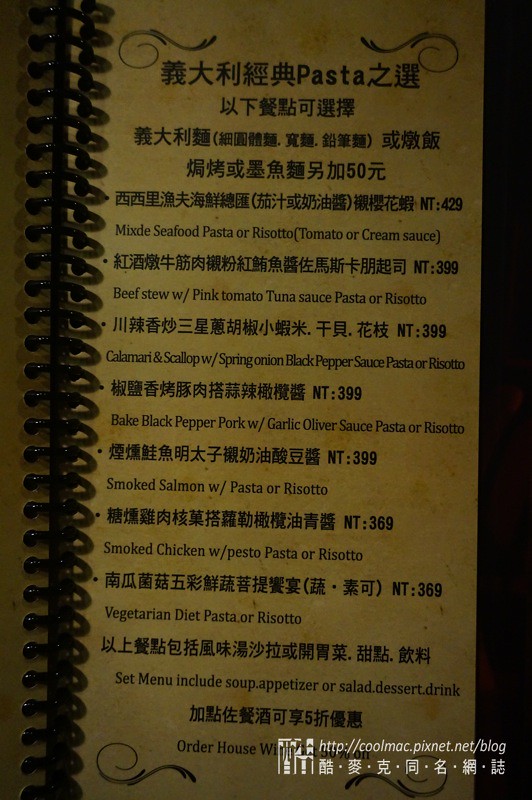 義大利經典Pasta之選
以下餐點可選擇
義大利麵(細圓體麵.寬麵.鉛筆麵) 或燉飯
焗烤或墨魚麵另加50元
·西西里漁夫海鮮總匯(茄汁或奶油醬)襯櫻花蝦 NT:429
Mixde Seafood Pasta or Risotto(Tomato or Cream sauce)
·紅酒燉牛筋肉襯粉紅鮪魚醬佐馬斯卡朋起司 NT:399
Beef stew w/ Pink tomato Tuna sauce Pasta or Risotto
·川辣香炒三星蔥胡椒小蝦米.干貝.花枝 NT:399
Calamari & Scallop w/ Spring onion Black Pepper Sauce Pasta or Risotto
·椒鹽香烤豚肉搭蒜辣橄欖醬 NT:399
Bake Black Pepper Pork w/ Garlic Oliver Sauce Pasta or Risotto
·煙燻鮭魚明太子襯奶油酸豆醬 NT:399
Smoked Salmon w/ Pasta or Risotto
·糖燻雞肉核菓搭蘿勒橄欖油青醬 NT:369
Smoked Chicken w/pesto Pasta or Risotto
·南瓜菌菇五彩鮮蔬菩提饗宴(蔬·素可) NT:369
Vegetarian Diet Pasta or Risotto
以上餐點包括風味湯沙拉或開胃菜.甜點.飲料
Set Menu include soup.appetizer or salad.dessert.drink
加點佐餐酒可享5折優惠
Order House Wi 50% off
http://coolmac.pixnet.net/blog
酷·麥·克·同·名·網·誌